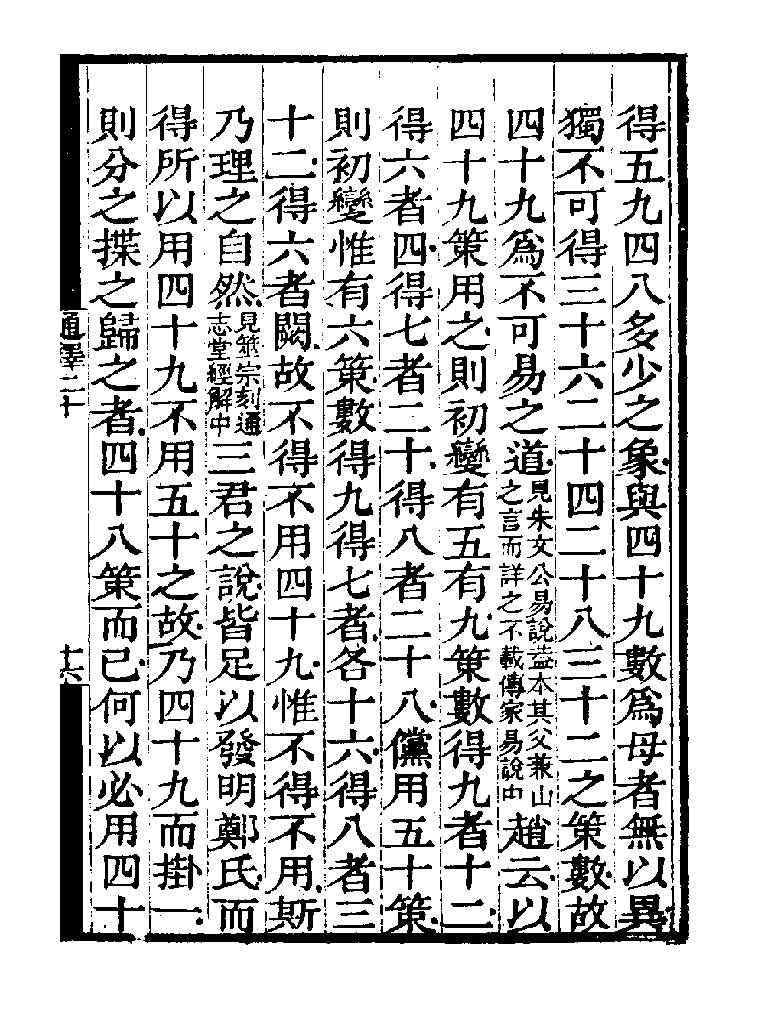 得五九四八多少之象與四十九數爲母者無以異
獨不可得三十六二十四二十八三十二之策數故
四十九爲不可易之道見朱文公易說葢本其父兼山之言而詳之不載傳家易說中趙云以
四十九策用之則初變有五有九策數得九者十二
得六者四得七者二十得八者二十八儻用五十策
則初變惟有六策數得九得七者各十六得八者三
十二得六者闕故不得不用四十九惟不得不用斯
乃理之自然見筮宗刻通志堂經解中三君之說皆足以發明鄭氏而
得所以用四十九不用五十之故乃四十九而掛一
則分之揲之歸之者四十八策而已何以必用四十
通釋二十
十六